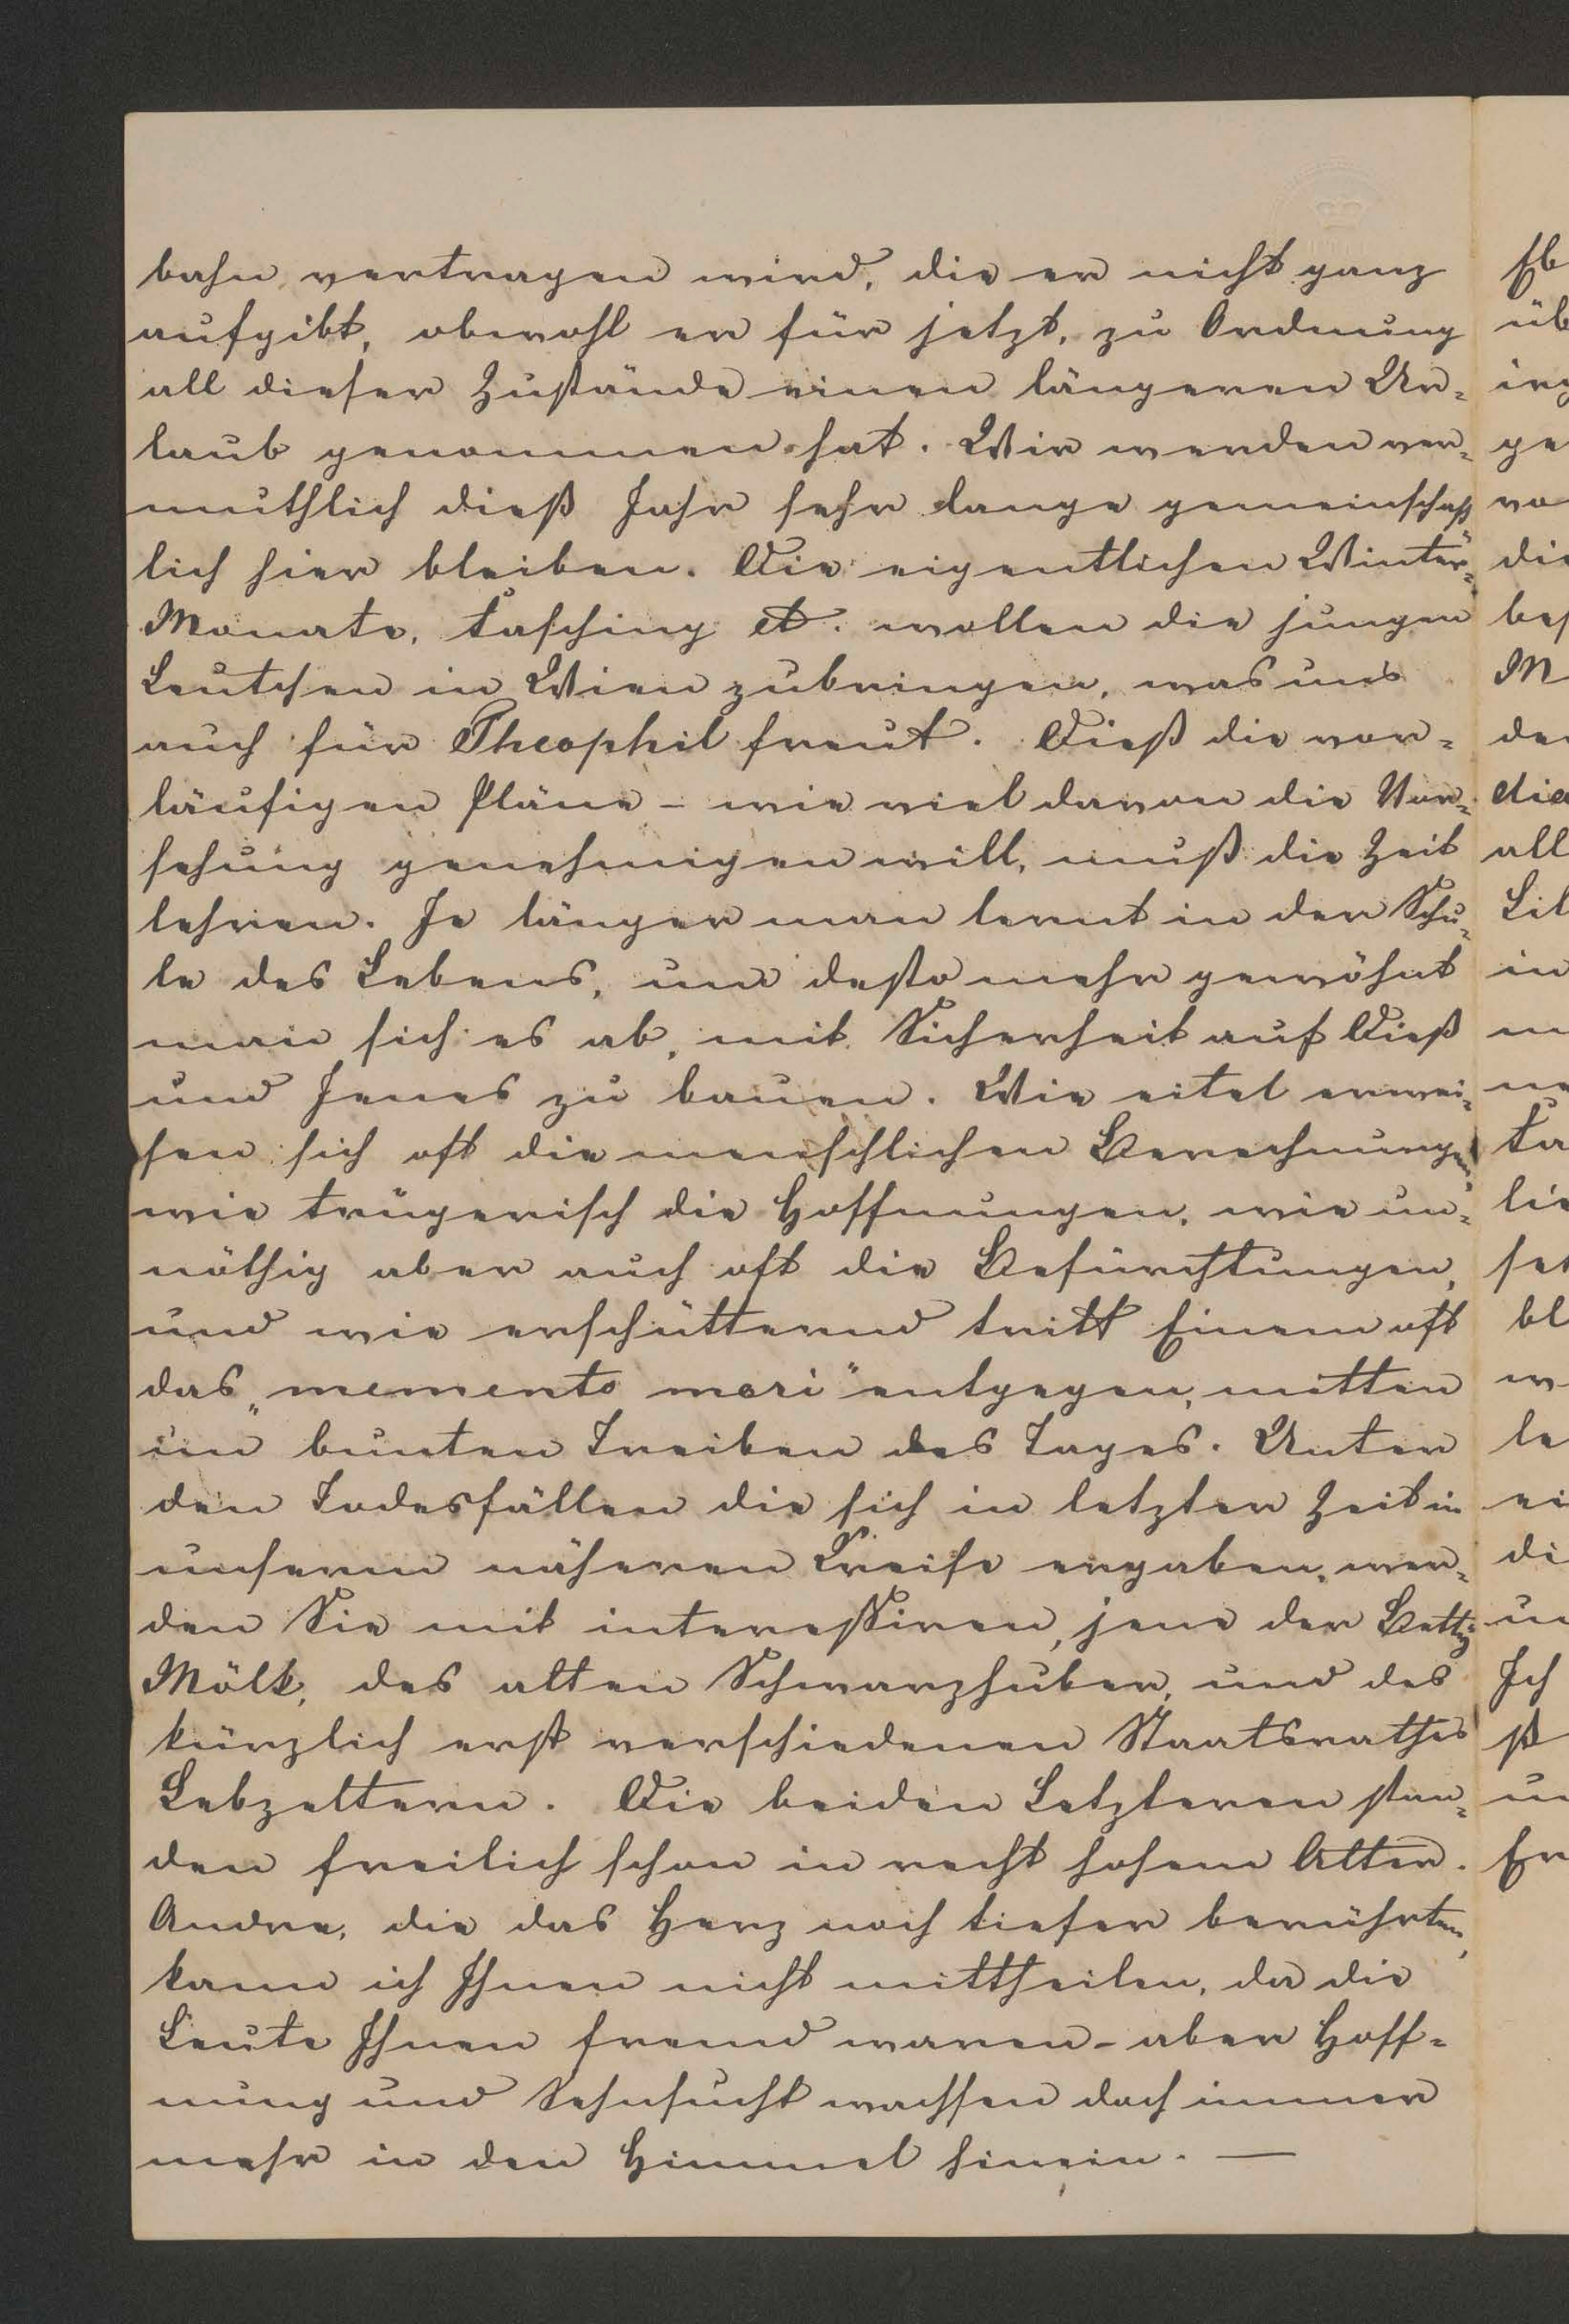 bahn vertragen wird, die er nicht ganz
aufgibt, obwohl er für jetzt, zu Ordnung
all dieser Zustände einen längeren Ur-
laub genommen hat. Wir werden ver-
muthlich dieß Jahr sehr lange gemeinschaft
lich hier bleiben. Die eigentlichen Winter-
Monate, Fasching et. wollen die jungen
Leutchen in Wien zubringen, was uns
auch für Theophil freut. Dieß die vor-
läufigen Pläne - wie viel davon die Vor-
sehung genehmigen will, muß die Zeit
lehren. Je länger man lernt in der Schu-
le des Lebens, um desto mehr gewöhnt
man sich es ab, mit Sicherheit auf Dieß
und Jenes zu bauen. Wie eitel erwei-
sen sich oft die menschlichen Berechnungen,
wie trügerisch die Hoffnungen, wie un-
nöthig aber auch oft die Befürchtungen,
und wie erschütternd tritt Einem oft
das „memento mori" entgegen, mitten
im bunten Treiben des Tages. Unter
den Todesfällen die sich in letzter Zeit in
unserm näheren Kreise ergaben, wer-
den Sie mit interessiren, jene der Betty
Mölk, des alten Schwarzhuber, und des
kürzlich erst verschiedenen Staatsrathes
Lebzeltern. Die beiden Letzteren stan-
den freilich schon in recht hohem Alter.
Andre, die das Herz noch tiefer berührten,
kann ich Ihnen nicht mittheilen, da die
Leute Ihnen fremd waren - aber Hoff-
nung und Sehnsucht wachsen doch immer
mehr in den Himmel hinein. —